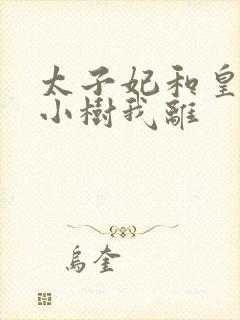 太子妃和皇
小樹我離
烏奎